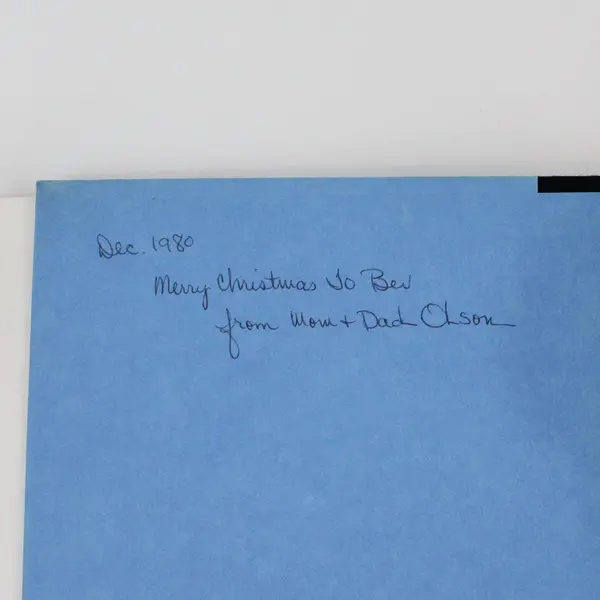 Dec. 1980
Merry Christmas To Bev
from Mom + Dad Olson